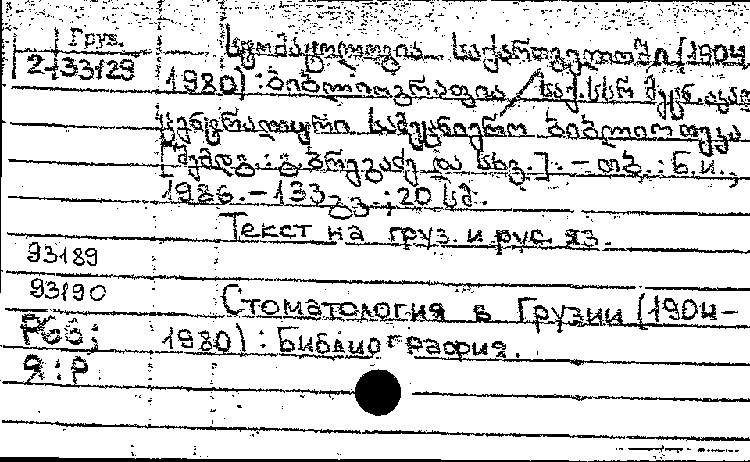 Груз.
2-33129
სტომატოლოგია საქართველოში (1904-
1980) : ბიბლიოგრაფია / საქ. სსრ მეცნ. აკად.
ცენტრალური სამეცნიერო ბიბლიოთეკა
[შემდგ.: გ. ბრეგაძე და სხვ.]. – თბ. : Б.и.,
1986. – 133 გვ. ; 20 სმ.
Текст на груз. и рус. яз.
93189
93190
Стоматология в Грузии (1904-
РбЗ; 1980) : Библиография.
Я : Р